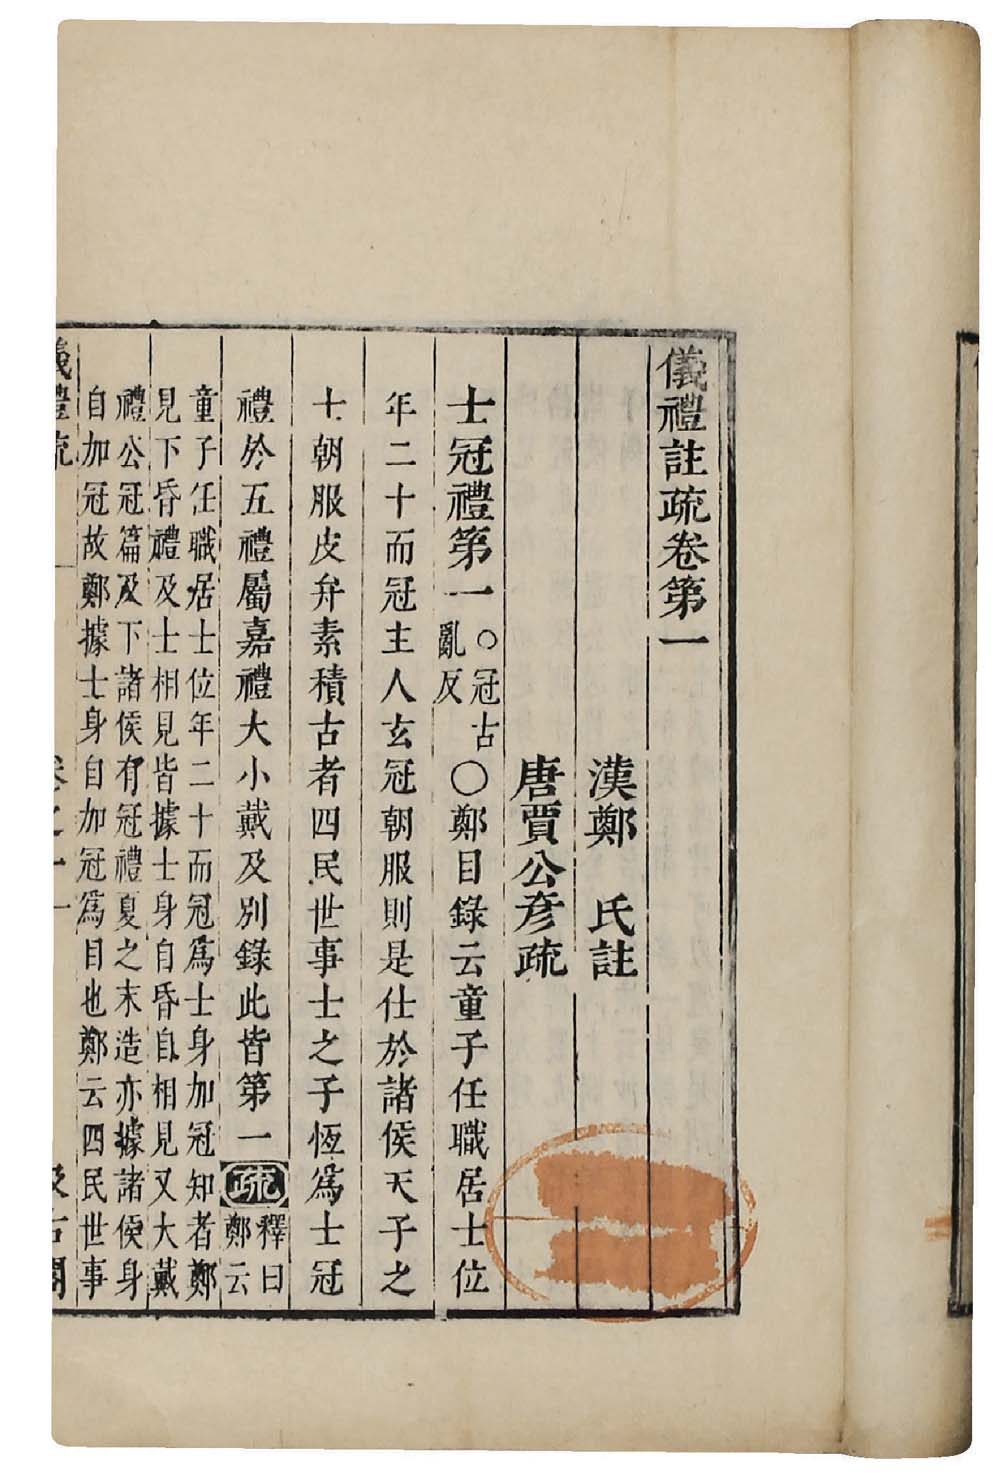 儀禮註疏卷第一
漢鄭　氏註
唐賈公彥疏
士冠禮第一
○冠古
亂反
○鄭目錄云童子任職居士位
年二十而冠主人玄冠朝服則是仕於諸侯天子之
士朝服皮弁素積古者四民世事士之子恆爲士冠
禮於五禮屬嘉禮大小戴及別錄此皆第一
疏
釋曰
鄭云
童子任職居士位年二十而冠爲士身加冠知者鄭
見下昏禮及士相見皆據士身自昏自相見又大戴
禮公冠篇及下諸侯有冠禮夏之末造亦據諸侯身
自加冠故鄭據士身自加冠爲目也鄭云四民世事
儀禮疏
卷之一
一
汲古閣